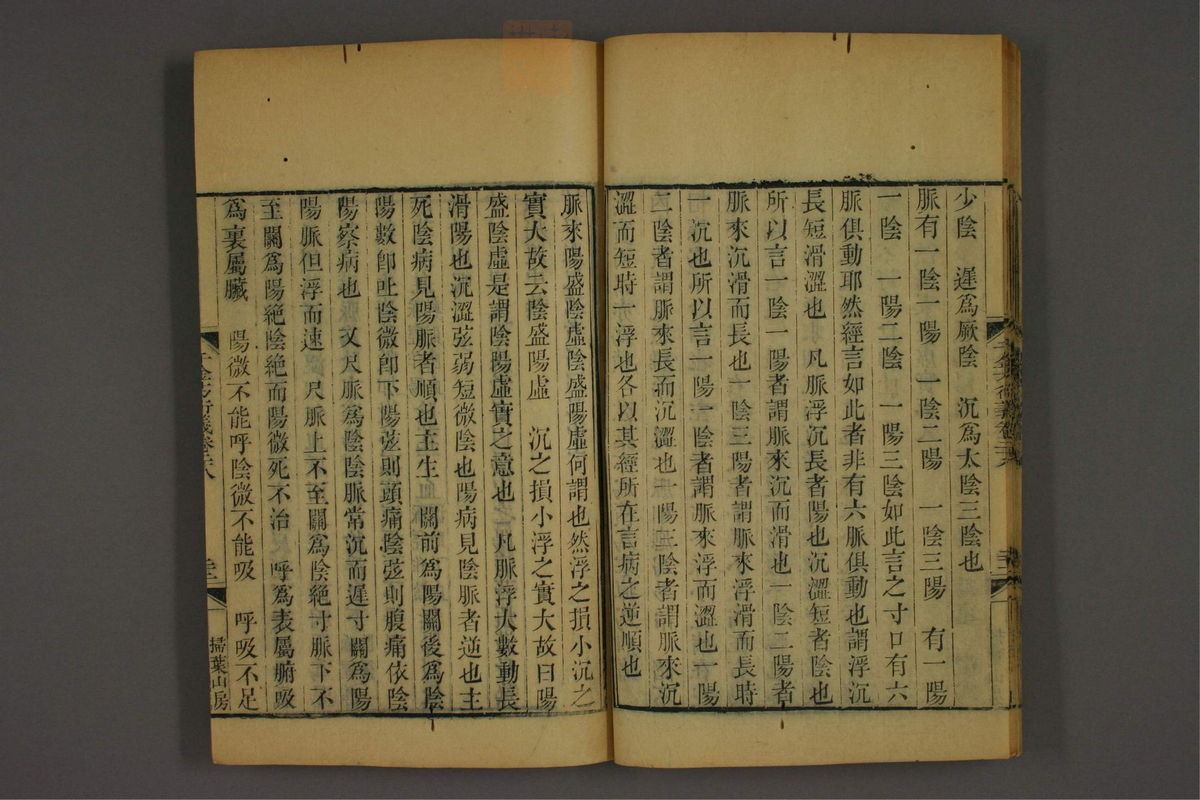 少陰　遲為厥陰　沉為太陰三陰也
脈有一陰一陽　一陰二陽　一陰三陽　有一陽
一陰　一陽二陰　一陽三陰如此言之寸口有六
脈俱動耶然經言如此者非有六脈俱動也謂浮沉
長短滑澀也　凡脈浮沉長者陽也沉澀短者陰也
所以言一陰一陽者謂脈來沉而滑也一陰二陽者
脈來沉滑而長也一陰三陽者謂脈來浮滑而長時
一沉也所以言一陽一陰者謂脈來浮而澀也一陽
二陰者謂脈來長而沉澀也一陽三陰者謂脈來沉
澀而短時一浮也各以其經所在言病之逆順也
脈來陽盛陰虛陰盛陽虛何謂也然浮之損小沉之
實大故云陰盛陽虛　沉之損小浮之實大故曰陽
盛陰虛是謂陰陽虛實之意也　凡脈浮大數動長
滑陽也沉澀弦弱短微陰也陽病見陰脈者逆也主
死陰病見陽脈者順也主生　關前為陽關後為陰
陽數即吐陰微即下陽弦則頭痛陰弦則腹痛依陰
陽察病也　又尺脈為陰陰脈常沉而遲寸關為陽
陽脈但浮而速　尺脈上不至關為陰絕寸脈下不
至關為陽絕陰絕而陽微死不治　呼為表屬腑吸
為裏屬臟　陽微不能呼陰微不能吸　呼吸不足
掃葉山房